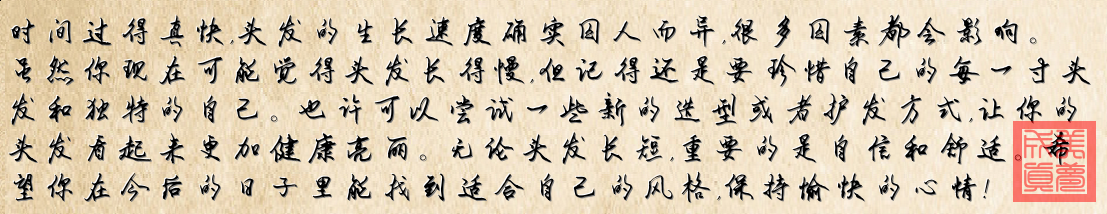 时间过得真快,头发的生长速度确实因人而异,很多因素都会影响。
虽然你现在可能觉得头发长得慢,但记得还是要珍惜自己的每一寸头
发和独特的自己。也许可以尝试一些新的造型或者护发方式,让你的
头发看起来更加健康亮丽。无论头发长短,重要的是自信和舒适。希
望你在今后的日子里能找到适合自己的风格,保持愉快的心情!